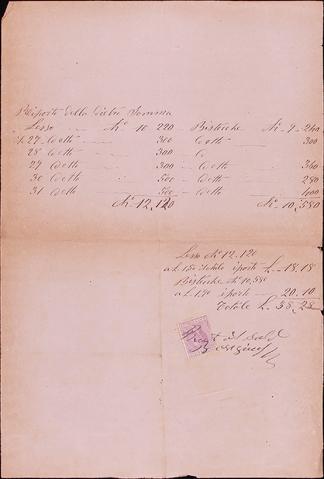 Riporto della Dietro Somma
Lesso — N° 10 220 Bistecche N° 9-260
27 Detti — 300 Detti — 300
28 Detti — 300 D
29 Detti — 300 — Detti — 360
30 Detti — 500 — Detti — 280
31 Detti — 500 — Detti — 400
N° 12,120 N° 10,580
Lesso N° 12,120
a L 150 totale iporto L 18,18
Bistecche N° 10,580
a L 190 iporto — 20.10
Totale L. 38,28